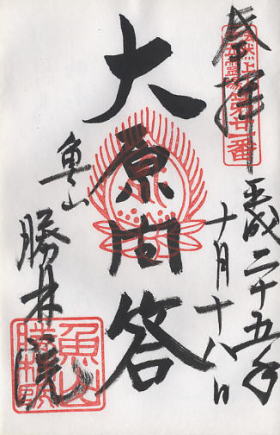 奉拝
平成二十五年
十月十八日
大原問答
魚山
勝林院
魚山
勝林院